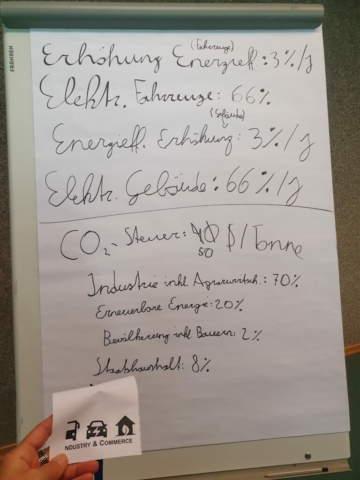 FRANKEN
(Fahrzeuge)
Erhöhung Energieff.: 3%/J
Elektr. Fahrzeuge: 66%
(Gebäude)
Energieff. Erhöhung: 3%/J
Elektr. Gebäude: 66%/J
CO₂-Steuer: 40 $/Tonne
50
Industrie inkl. Agrarwirtsch.: 70%
Erneuerbare Energie: 20%
Bevölkerung inkl Bauern: 2%
Staatshaushalt: 8%
INDUSTRY & COMMERCE